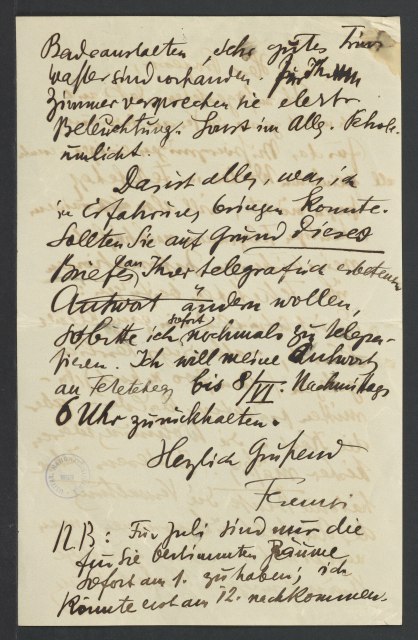 Badeanstalten, sehr gutes Trink-
wasser sind vorhanden. Für Ihr
Zimmer versprechen sie elektr.
Beleuchtung. Sonst im Allg. Petrol-
eumlicht.
Das ist alles, was ich
in Erfahrung bringen konnte.
Sollten Sie auf Grund dieses
Briefes an Ihrer telegrafisch erbetenen
Antwort ändern wollen,
so bitte ich sofort nochmals zu telegra-
fieren. Ich will meine Antwort
an Feketehegy bis 8/VI. Nachmittags
6 Uhr zurückhalten.
Herzlich Grüßend
Ferenczi
N.B: Für Juli sind nur die
für Sie bestimmten Räume
sofort am 1. zu haben; ich
könnte erst am 12. nachkommen.